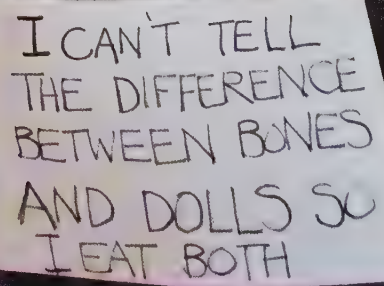 I CAN'T TELL
THE DIFFERENCE
BETWEEN BONES
AND DOLLS SO
I EAT BOTH